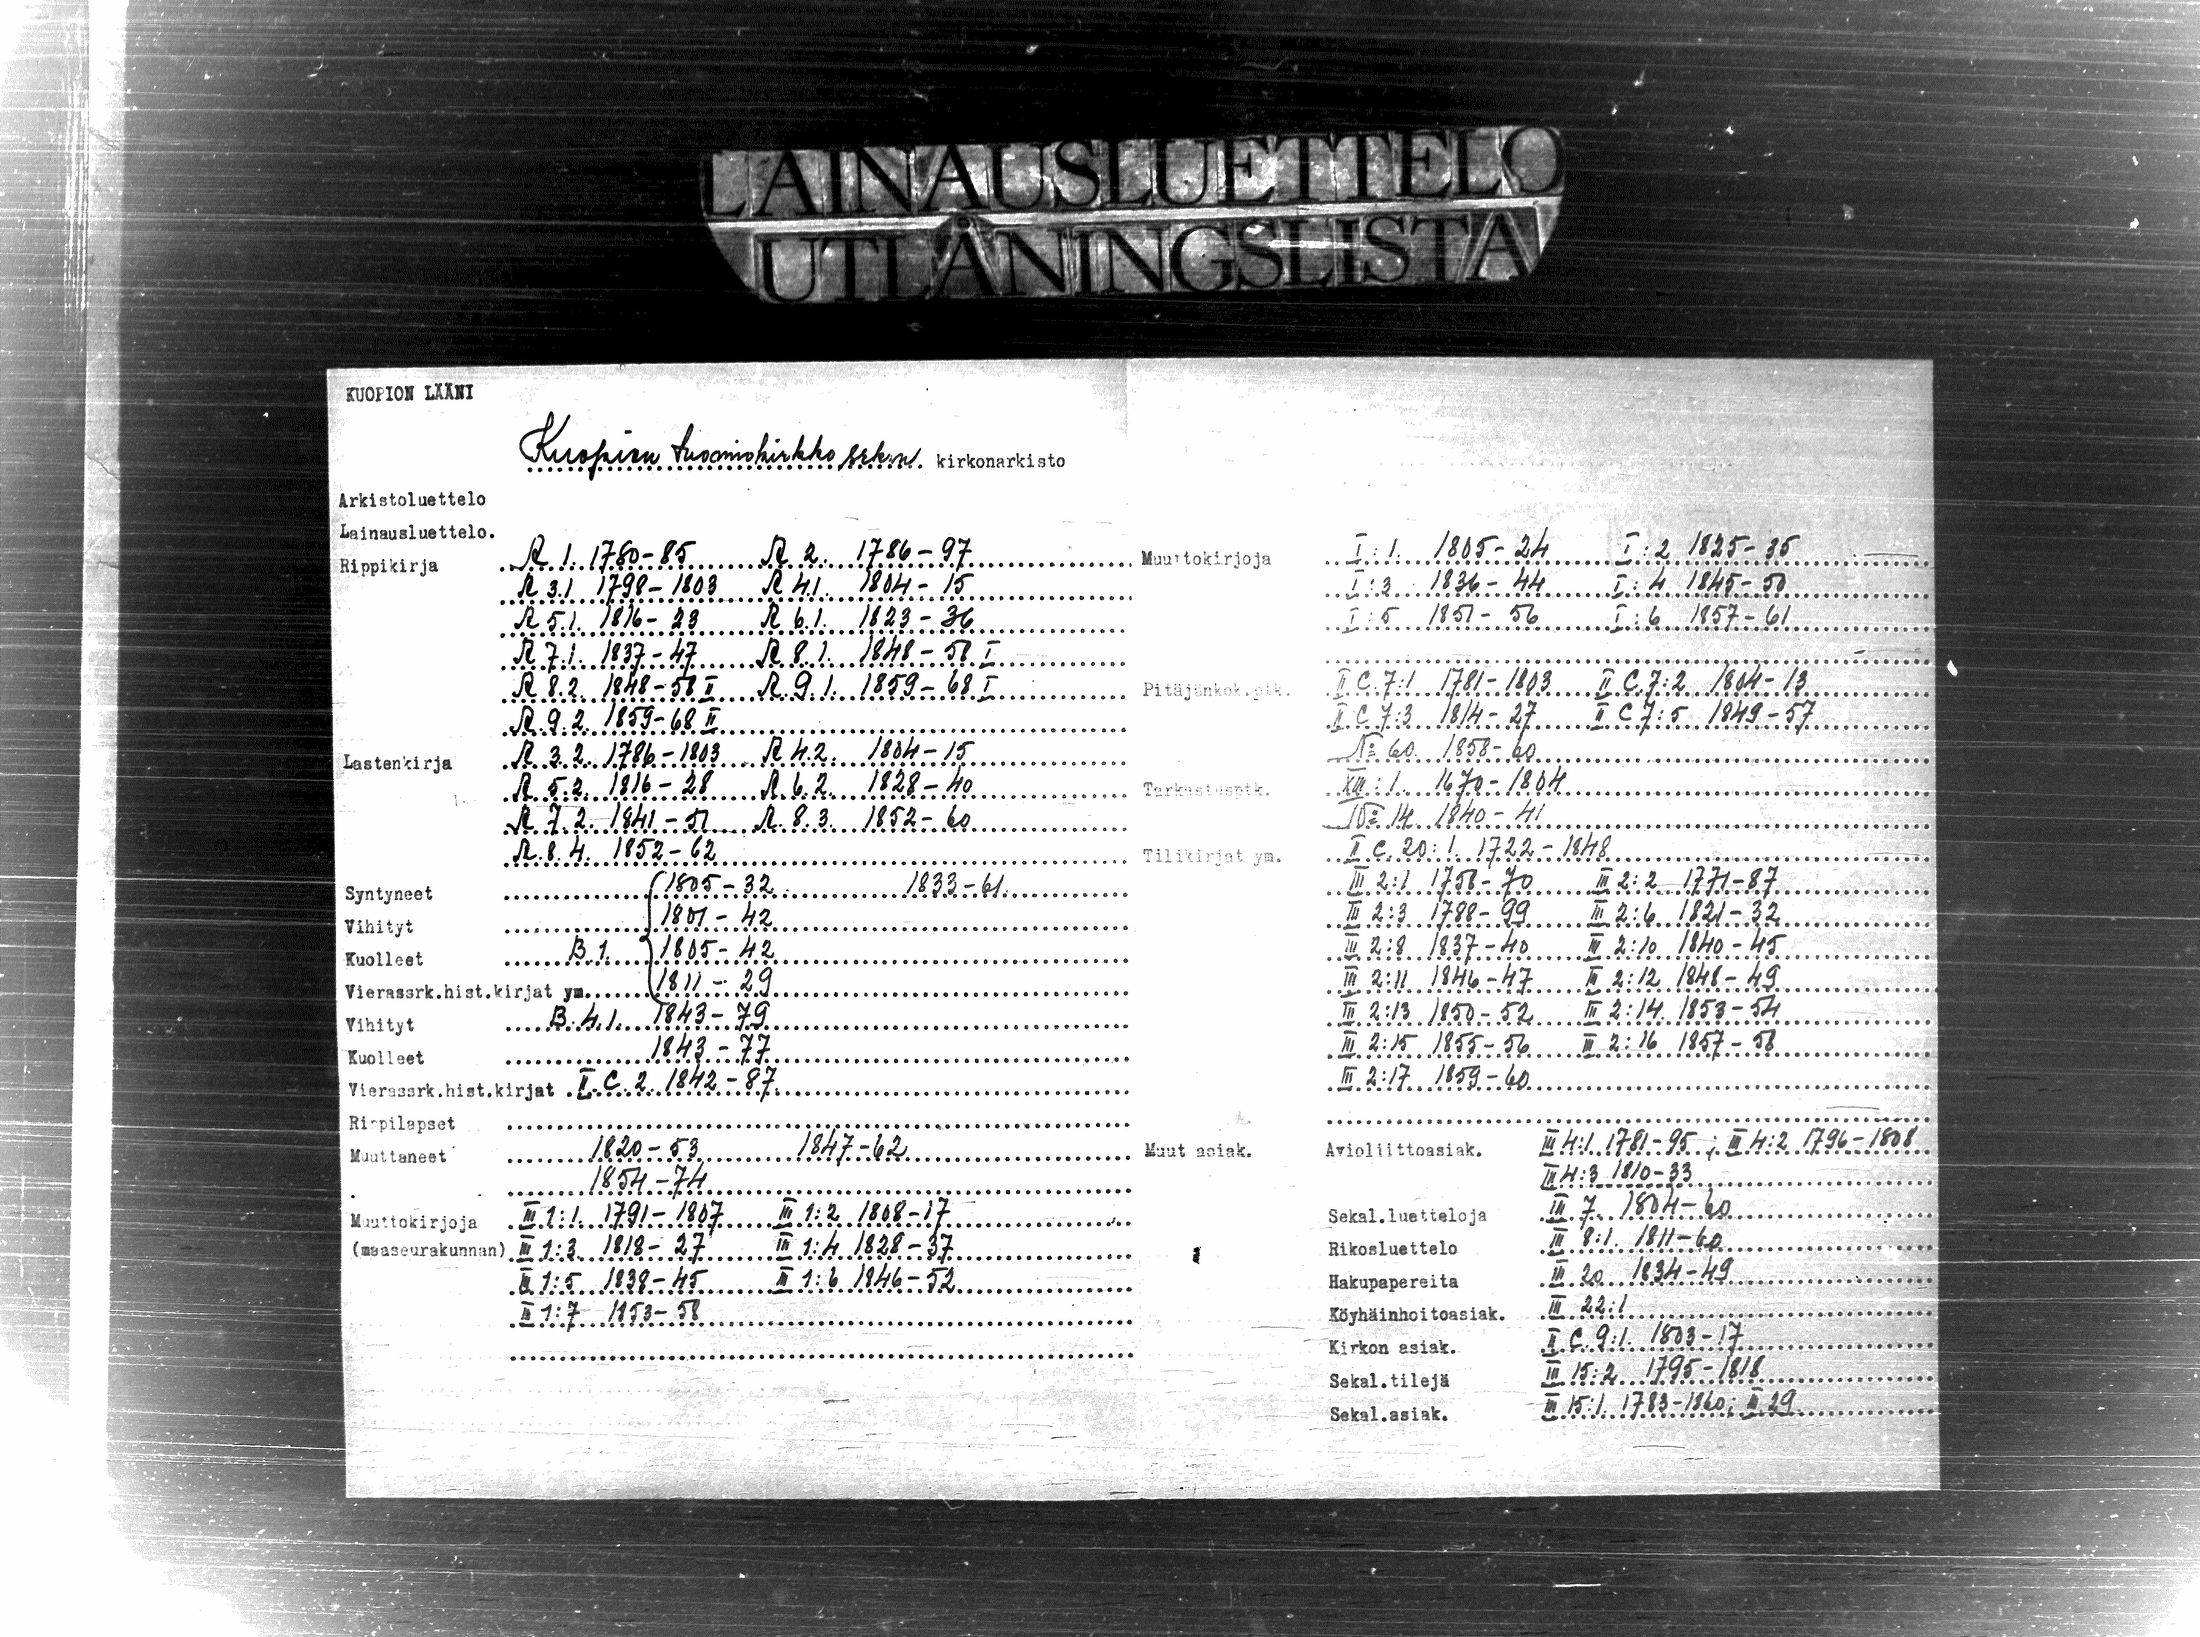 LAINAUSLUETTELO
UTLÅNINGSLISTA
KUOPION LÄÄNI
Kuopion tuomiokirkko srk:n. kirkonarkisto
Arkistoluettelo
Lainausluettelo.
Rippikirja A 1. 1780-85 A 2. 1786-97
A 3.1 1798-1803 A 4.1. 1804-15
A 5.1. 1816-23 A 6.1. 1823-36
A 7.1. 1837-47 A 8.1. 1848-58 I
A 8.2. 1848-58 II A 9.1. 1859-68 I
A 9.2. 1859-68 II
Lastenkirja A 3.2. 1786-1803 A 4.2. 1804-15
A 5.2. 1816-28 A 6.2. 1828-40
A 7.2. 1841-51 A 8.3. 1852-60
A 8.4. 1852-62
Syntyneet 1805-32 1833-61
Vihityt 1801-42
Kuolleet B.1. 1805-42
Vierassrk.hist.kirjat ym. 1811-29
Vihityt B.4.1. 1843-79
Kuolleet 1843-77
Vierassrk.hist.kirjat II C.2. 1842-87
Rippilapset
Muuttaneet 1820-53 1847-62
1854-74
Muuttokirjoja III 1:1. 1791-1807 III 1:2 1808-17
(maaseurakunnan) III 1:3 1818-27 III 1:4 1828-37
III 1:5 1838-45 III 1:6 1846-52
III 1:7 1853-58
Muuttokirjoja I:1. 1805-24 I:2 1825-35
I:3 1836-44 I:4 1845-50
I:5 1851-56 I:6 1857-61
Pitäjänkok.ptk. II C.7:1 1781-1803 II C.7:2 1804-13
II C 7:3 1814-27 II C 7:5 1849-57
No 60. 1858-60
Tarkastusptk. XIII:1. 1670-1804
No 14 1840-41
Tilikirjat ym. II C.20:1. 1722-1848
III 2:1 1758-70 III 2:2 1771-87
III 2:3 1788-99 III 2:6 1821-32
III 2:8 1837-40 III 2:10 1840-45
III 2:11 1846-47 III 2:12 1848-49
III 2:13 1850-52 III 2:14 1853-54
III 2:15 1855-56 III 2:16 1857-58
III 2:17 1859-60
Muut asiak. Avioliittoasiak. III 4:1 1781-95; III 4:2 1796-1808
III 4:3 1810-33
Sekal.luetteloja III 7. 1804-60
Rikosluettelo III 8:1. 1811-60
Hakupapereita III 20 1834-49
Köyhäinhoitoasiak. III 22:1
Kirkon asiak. II C.9:1. 1803-17
Sekal.tilejä III 15:2 1795-1818
Sekal.asiak. III 15:1. 1783-1860; III 29